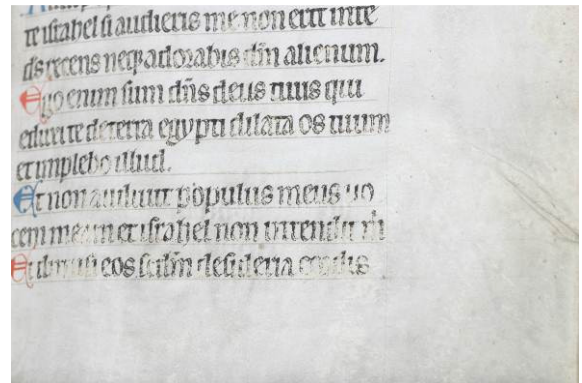 te israhel si audieris me non erit in te
ds recens neq; adorabis dm alienum.
Ego enim sum dns deus tuus qui
eduxi te de terra egypti dilata os tuum
et implebo illud.
Et non audiuit populus meus uo
cem meam et israhel non intendit m
Et dimisi eos scdm desideria cordis